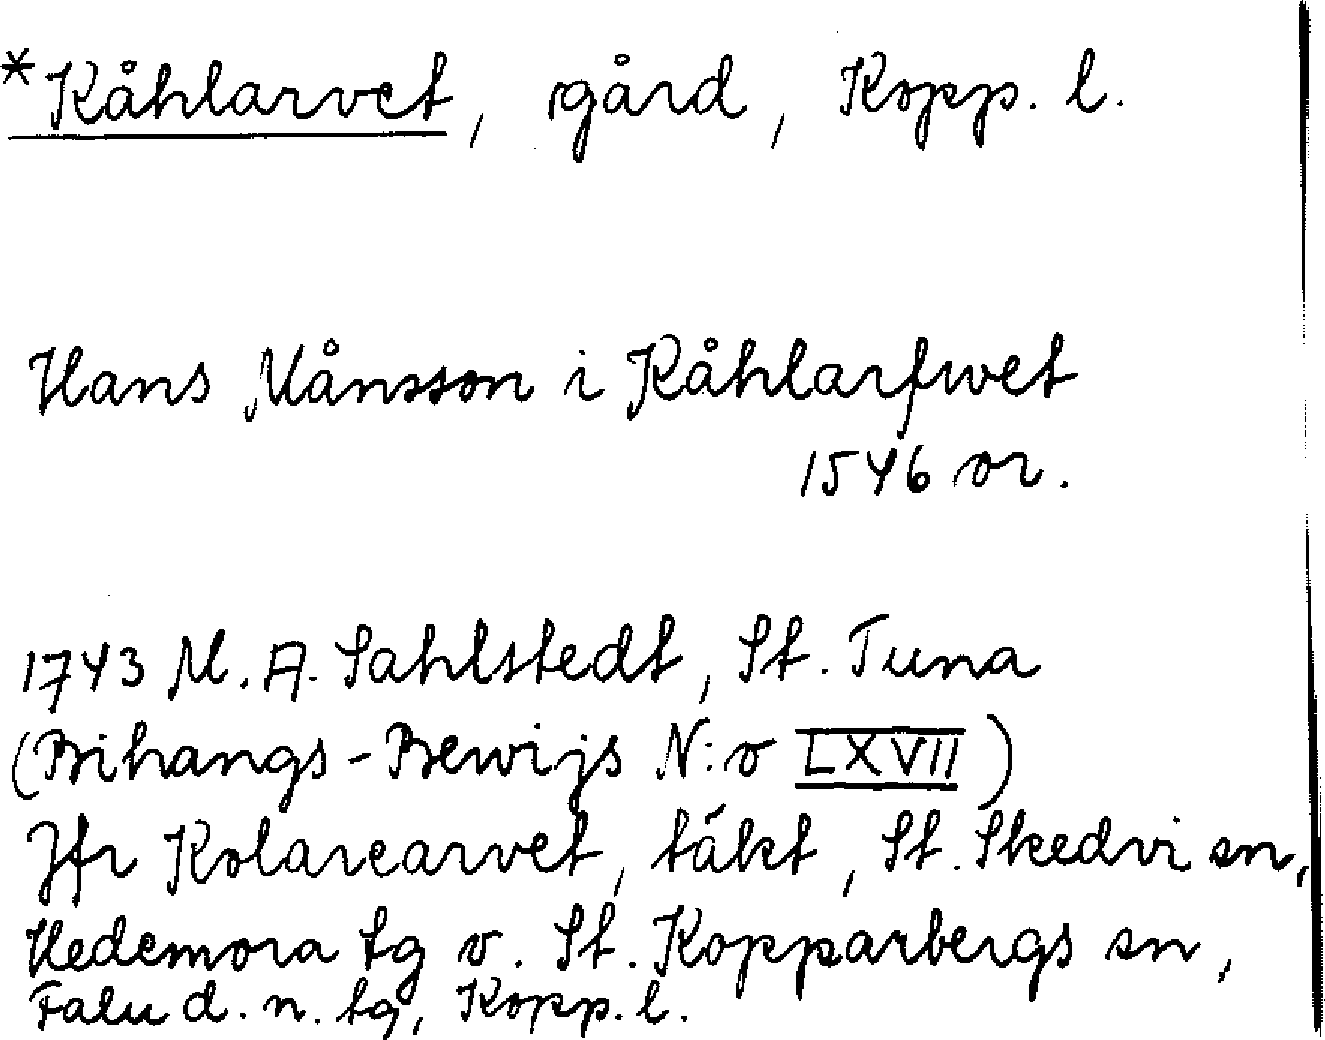 *Kåhlarvet, gård, Kopp. l.
Hans Månsson i Kåhlarfwet
1546 or.
1743 M. A. Sahlstedt, St. Tuna
(Bihangs-Bewijs N:o LXVII)
Jfr Kolarearvet, täkt, St. Skedvi sn,
Hedemora tg o. St. Kopparbergs sn,
Falu d. n. tg, Kopp. l.